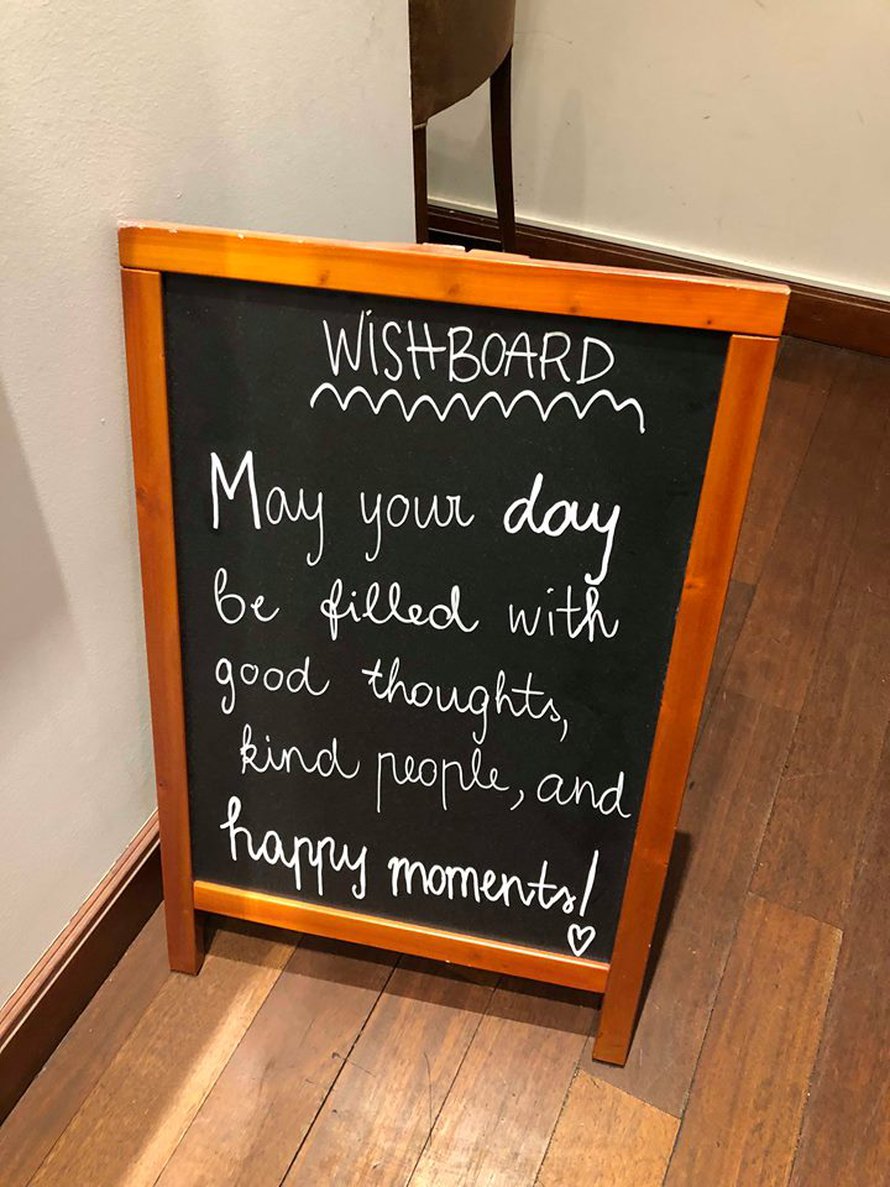 WISHBOARD
May your day
be filled with
good thoughts,
kind people, and
happy moments!